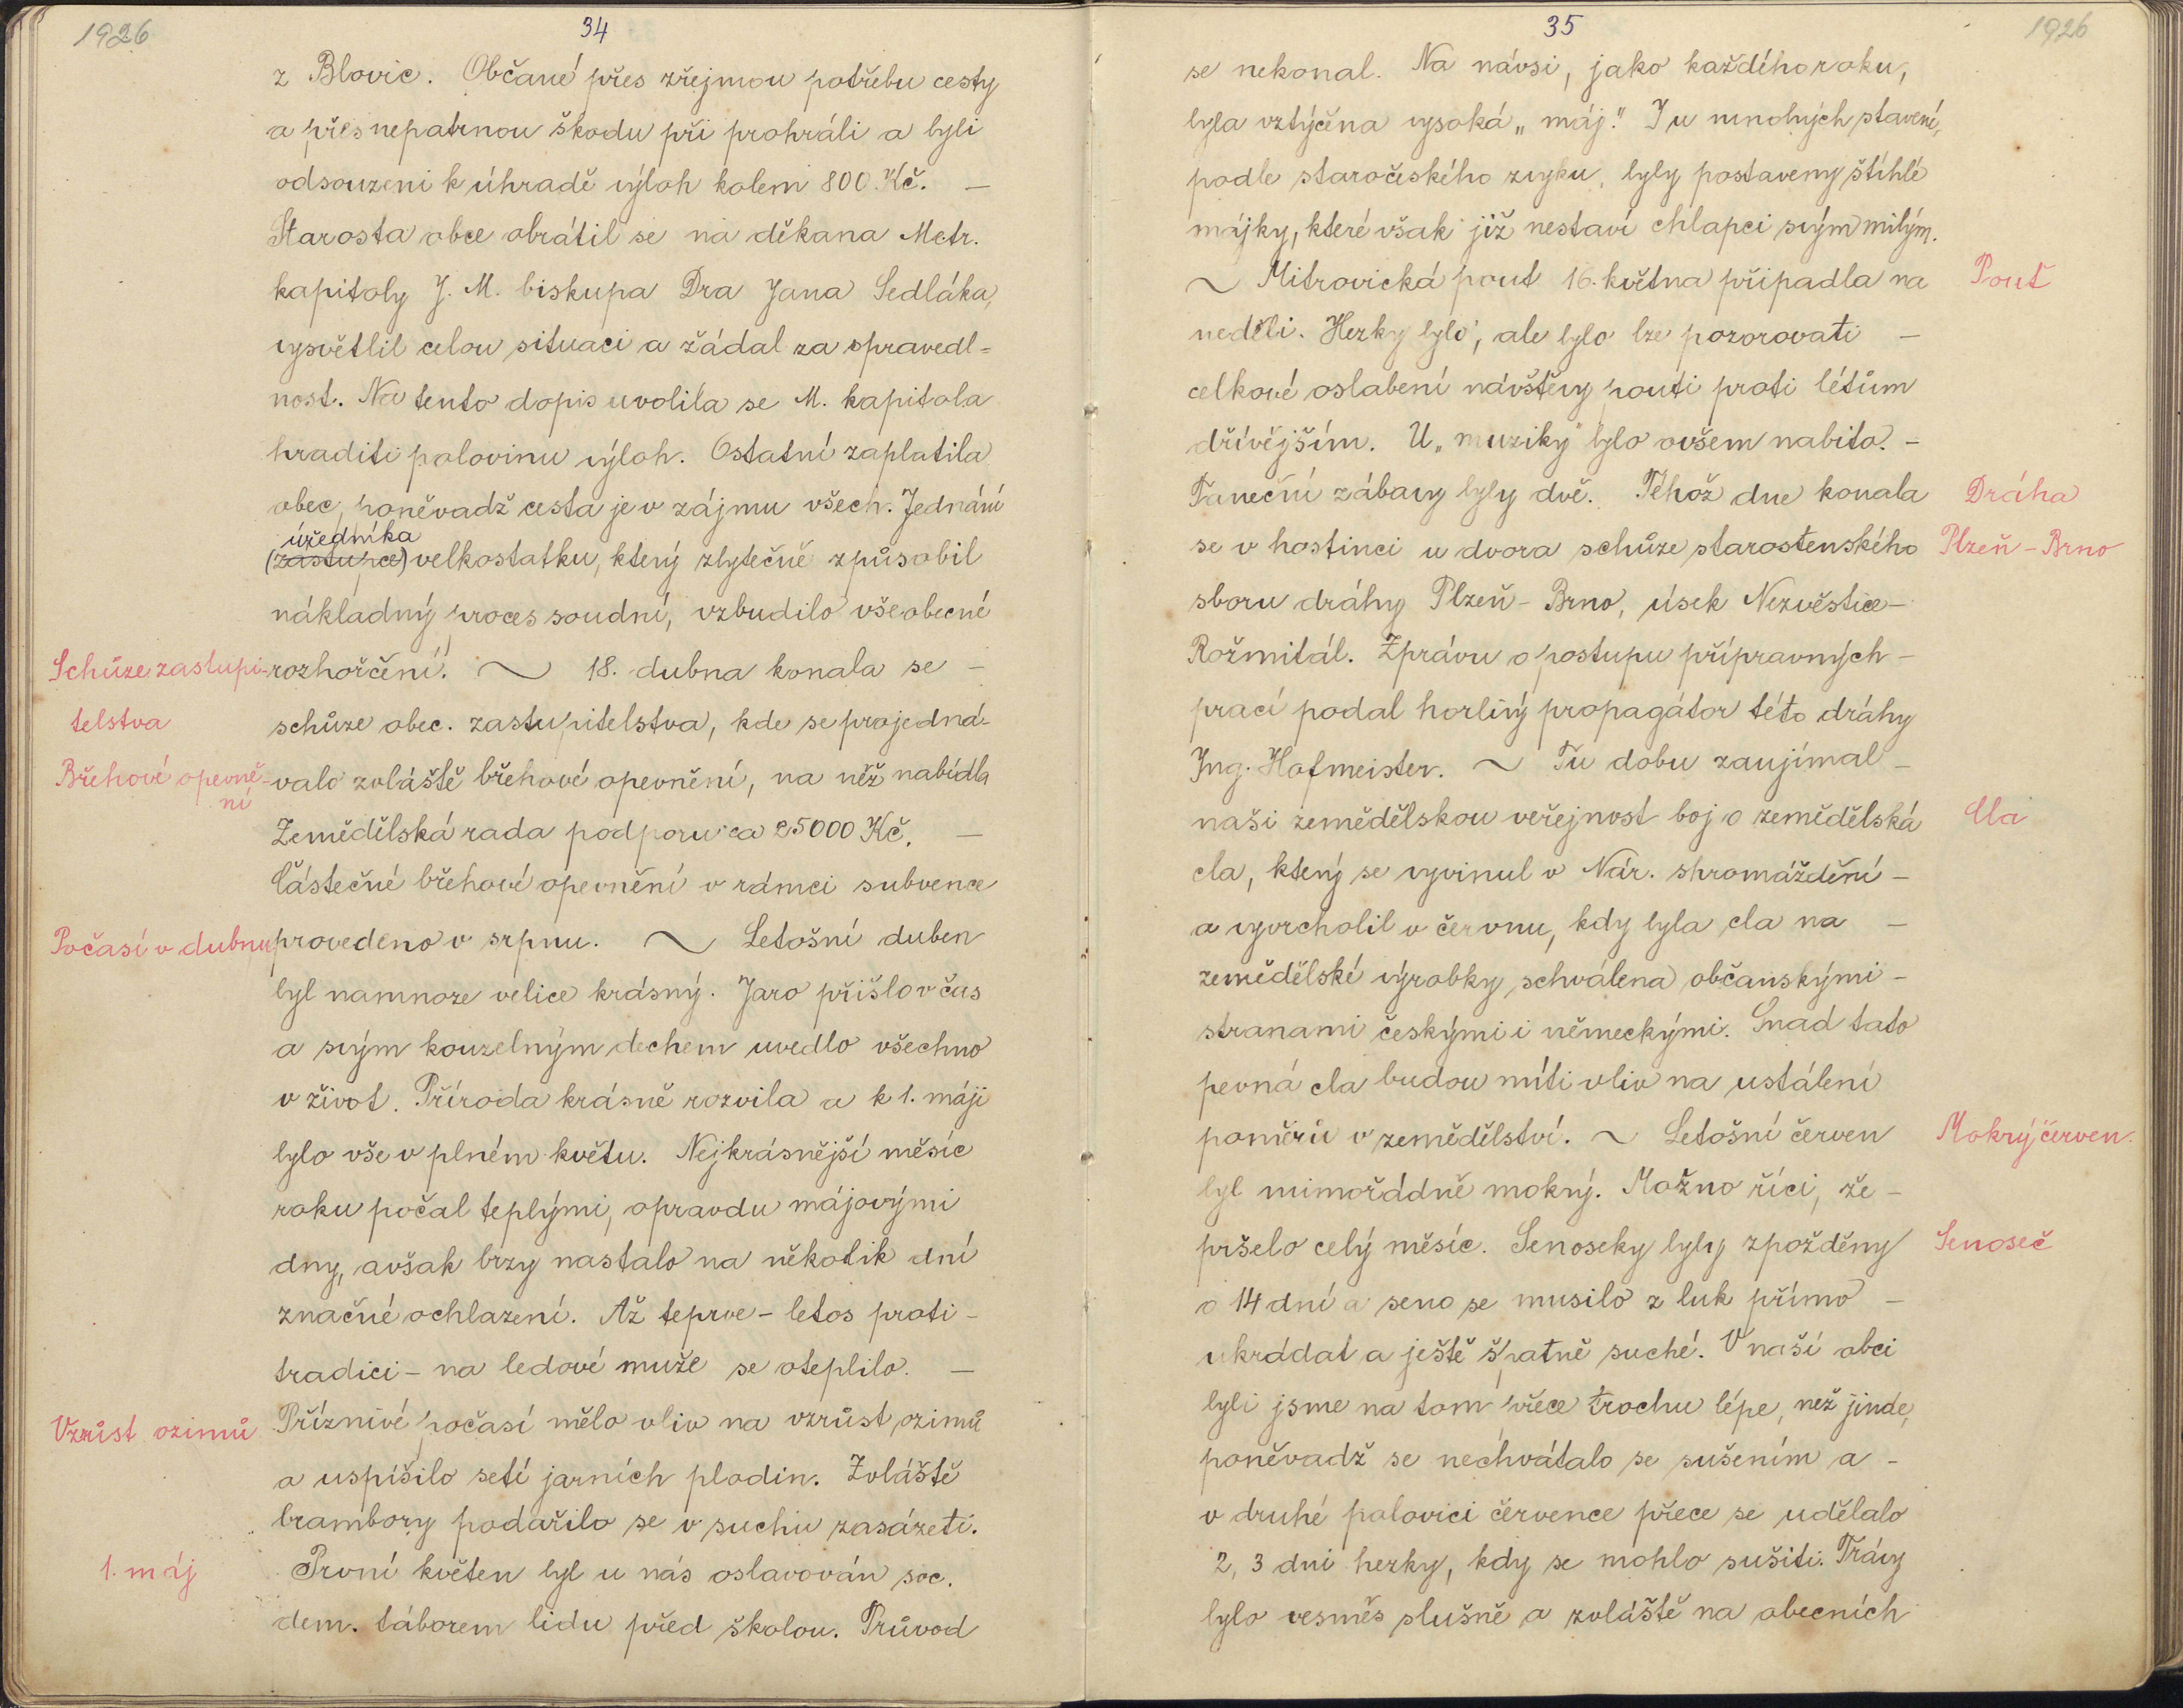 1926
34
z Blovic. Občané přes zřejmou potřebu cesty
a přes nepatrnou škodu při prohráli a byli
odsouzeni k úhradě výloh kolem 800 Kč. —
Starosta obce obrátil se na děkana Metr.
kapitoly J. M. biskupa Dra Jana Sedláka,
vysvětlil celou situaci a žádal za spravedl=
nost. Na tento dopis uvolila se M. kapitola
hraditi polovinu výloh. Ostatní zaplatila
obec, poněvadž cesta je v zájmu všech. Jednání
úředníka
(zástupce) velkostatku, který zbytečně způsobil
nákladný proces soudní, vzbudilo všeobecné
Schůze zastupi- rozhořčení. ~ 18. dubna konala se —
telstva schůze obec. zastupitelstva, kde se projedná-
Břehové opevně- valo zvláště břehové opevnění, na něž nabídla
ní
Zemědělská rada podporu ca 25000 Kč. —
Částečné břehové opevnění v rámci subvence
Počasí v dubnu provedeno v srpnu. ~ Letošní duben
byl namnoze velice krásný. Jaro přišlo v čas
a svým kouzelným dechem uvedlo všechno
v život. Příroda krásně rozvila a k 1. máji
bylo vše v plném květu. Nejkrásnější měsíc
roku počal teplými, opravdu májovými
dny, avšak brzy nastalo na několik dní
značné ochlazení. Až teprve – letos proti –
tradici – na ledové muže se oteplilo. —
Vzrůst ozimů Příznivé počasí mělo vliv na vzrůst ozimů
a uspíšilo setí jarních plodin. Zvláště
brambory podařilo se v suchu zasázeti.
1. máj První květen byl u nás oslavován soc.
dem. táborem lidu před školou. Průvod
35
1926
se nekonal. Na návsi, jako každého roku,
byla vztýčena vysoká „máj." I u mnohých stavení,
podle staročeského zvyku, byly postaveny štíhlé
májky, které však již nestaví chlapci svým milým.
~ Mitrovická pouť 16. května připadla na Pouť
neděli. Hezky bylo, ale bylo lze pozorovati —
celkové oslabení návštěvy pouti proti létům
dřívějším. U „muziky" bylo ovšem nabito. —
Taneční zábavy byly dvě. Téhož dne konala Dráha
se v hostinci u dvora schůze starostenského Plzeň – Brno
sboru dráhy Plzeň – Brno, úsek Nezvěstice –
Rožmitál. Zprávu o postupu přípravných –
prací podal horlivý propagátor této dráhy
Ing. Hofmeister. ~ Tu dobu zaujímal –
naši zemědělskou veřejnost boj o zemědělská Cla
cla, který se vyvinul v Nár. shromáždění –
a vyvrcholil v červnu, kdy byla cla na —
zemědělské výrobky schválena občanskými –
stranami českými i německými. Snad tato
pevná cla budou míti vliv na ustálení
poměrů v zemědělství. ~ Letošní červen Mokrý červen.
byl mimořádně mokrý. Možno říci, že –
pršelo celý měsíc. Senoseky byly zpožděny Senoseč
o 14 dní a seno se musilo z luk přímo —
ukrádat a ještě špatně suché. V naší obci
byli jsme na tom přece trochu lépe, než jinde,
poněvadž se nechvátalo se sušením a –
v druhé polovici července přece se udělalo
2, 3 dni hezky, kdy se mohlo sušiti. Trávy
bylo vesměs slušně a zvláště na obecních